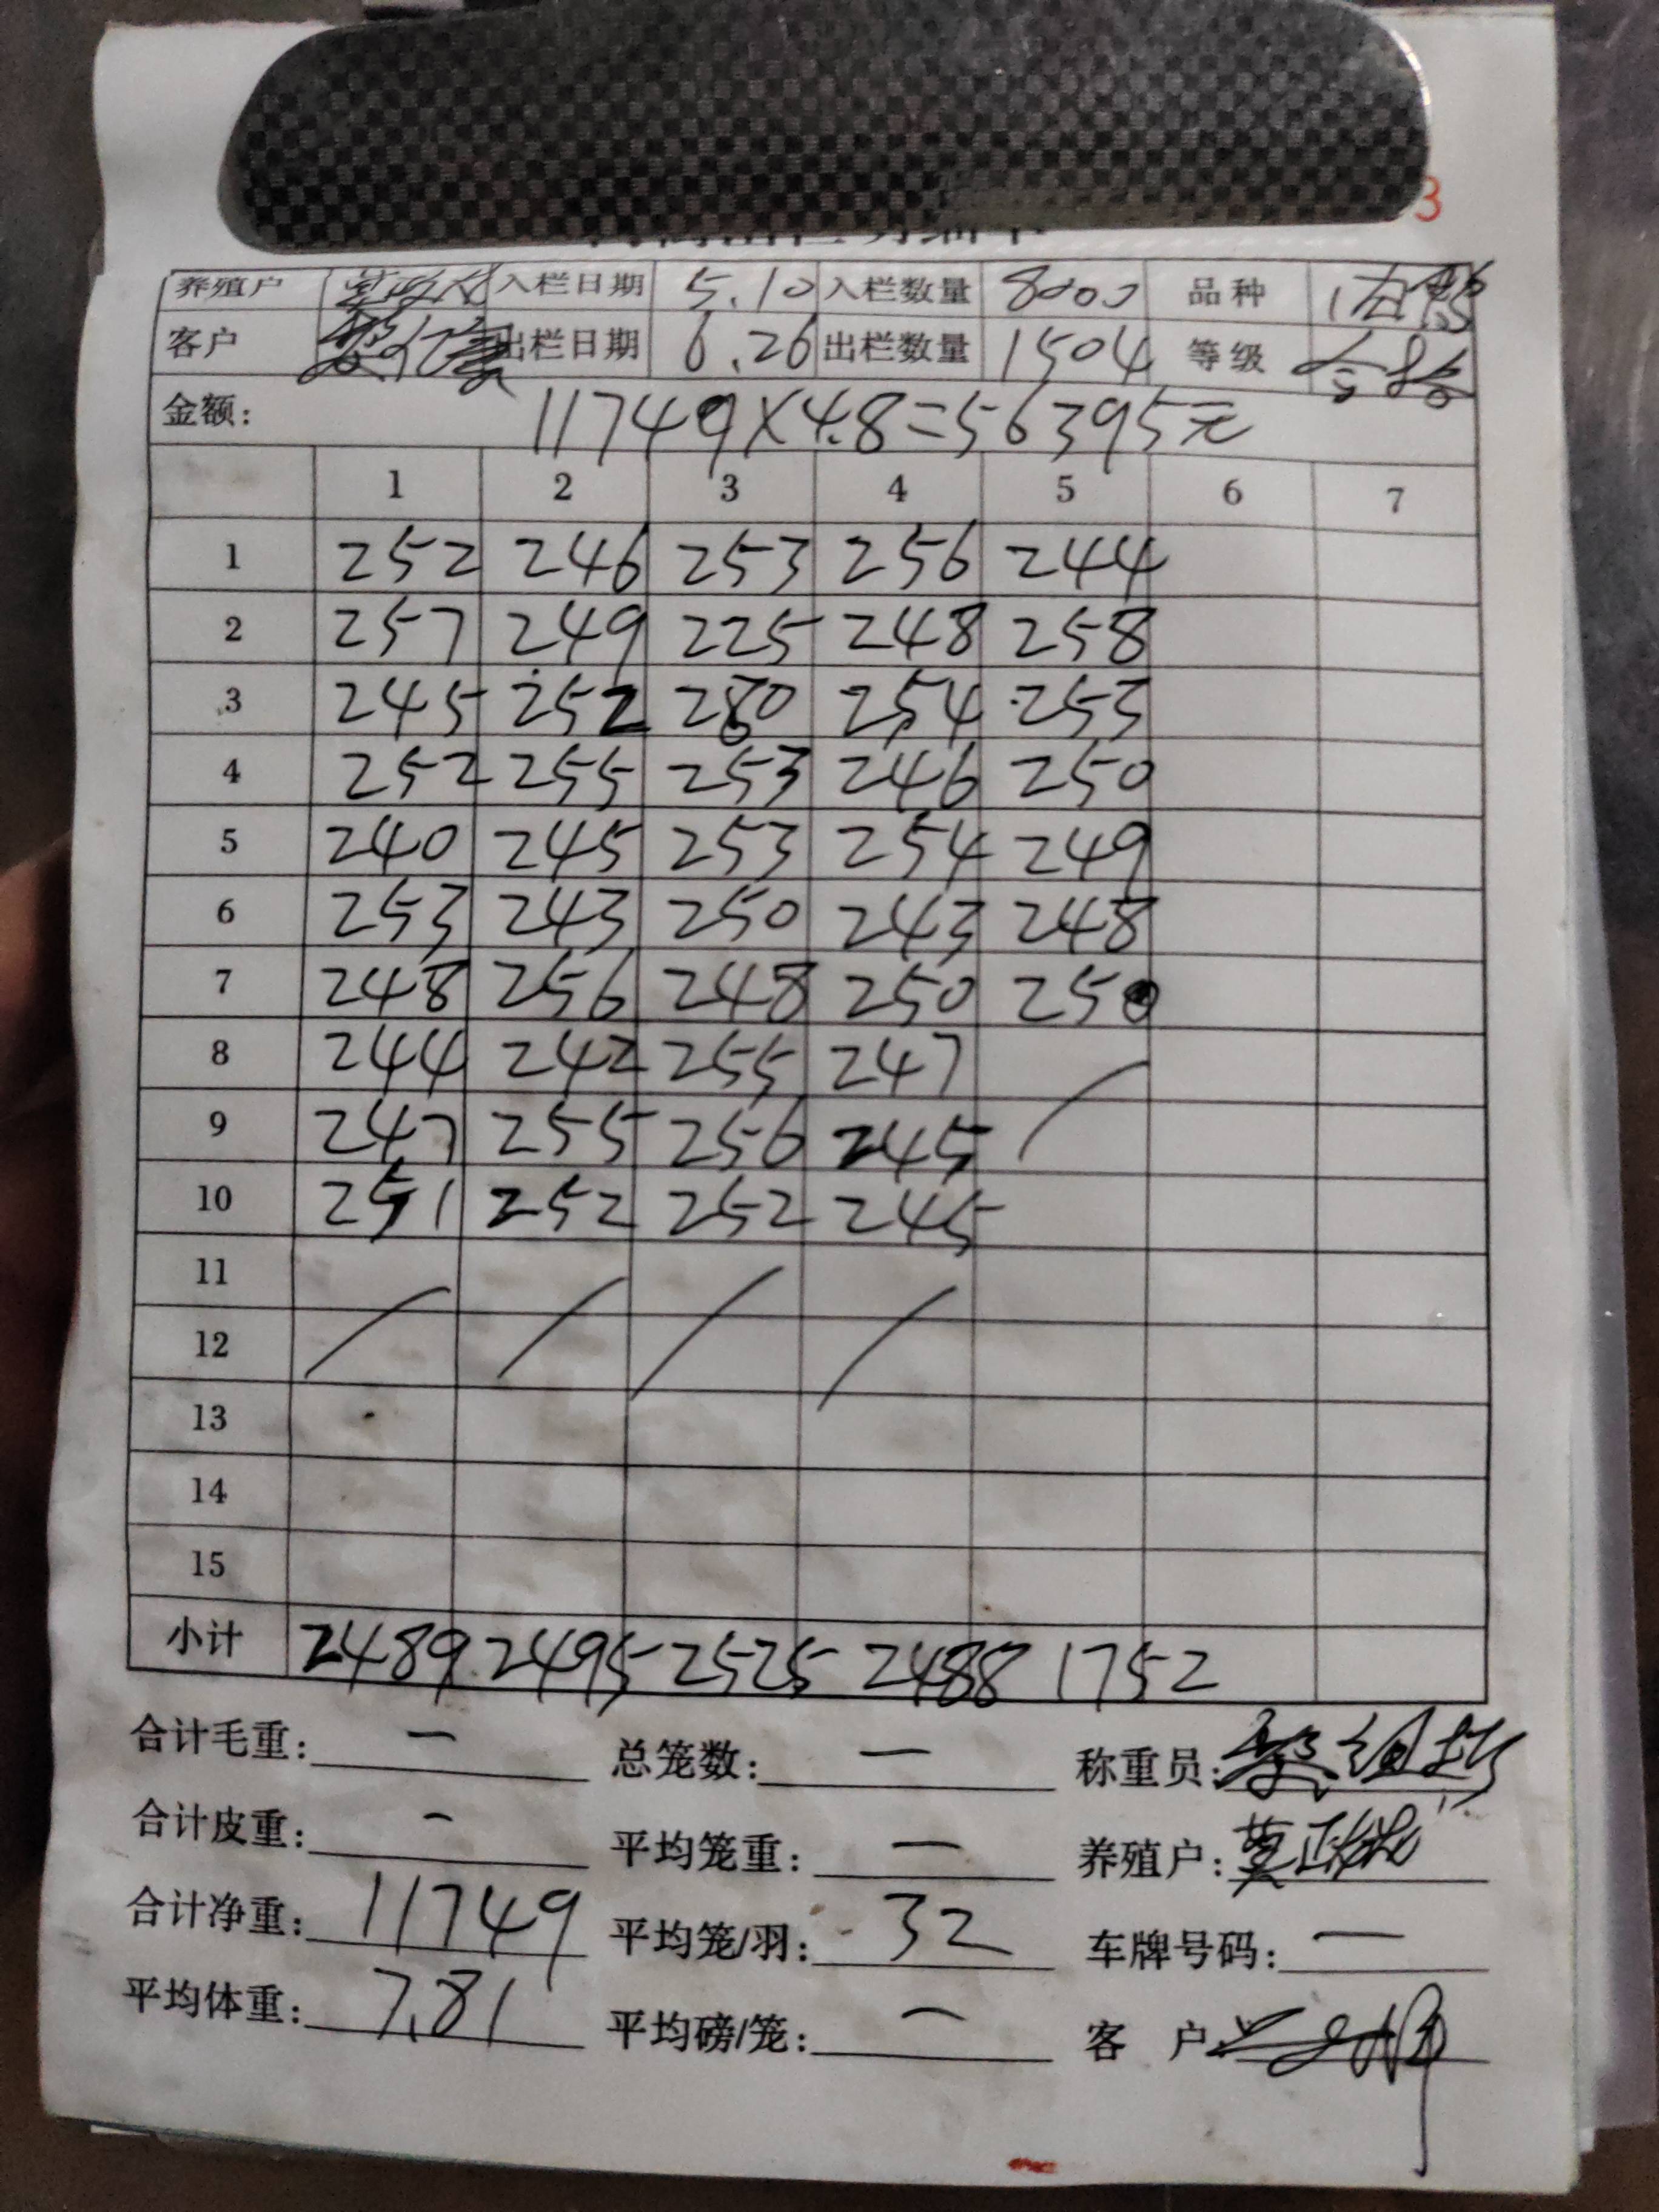 3
养殖户 入栏日期 5.10 入栏数量 8000 品种
客户 出栏日期 6.26 出栏数量 1504 等级 合格
金额: 11749×4.8=56395元
1 2 3 4 5 6 7
1 252 246 253 256 244
2 257 249 225 248 258
3 245 252 280 254 253
4 252 255 253 246 250
5 240 245 253 254 249
6 253 243 250 243 248
7 248 256 248 250 250
8 244 242 255 247
9 247 255 256 245
10 251 252 252 245
11
12
13
14
15
小计 2489 2495 2525 2488 1752
合计毛重: — 总笼数: — 称重员:
合计皮重: — 平均笼重: — 养殖户:
合计净重: 11749 平均笼/羽: 32 车牌号码: —
平均体重: 7.81 平均磅/笼: — 客 户